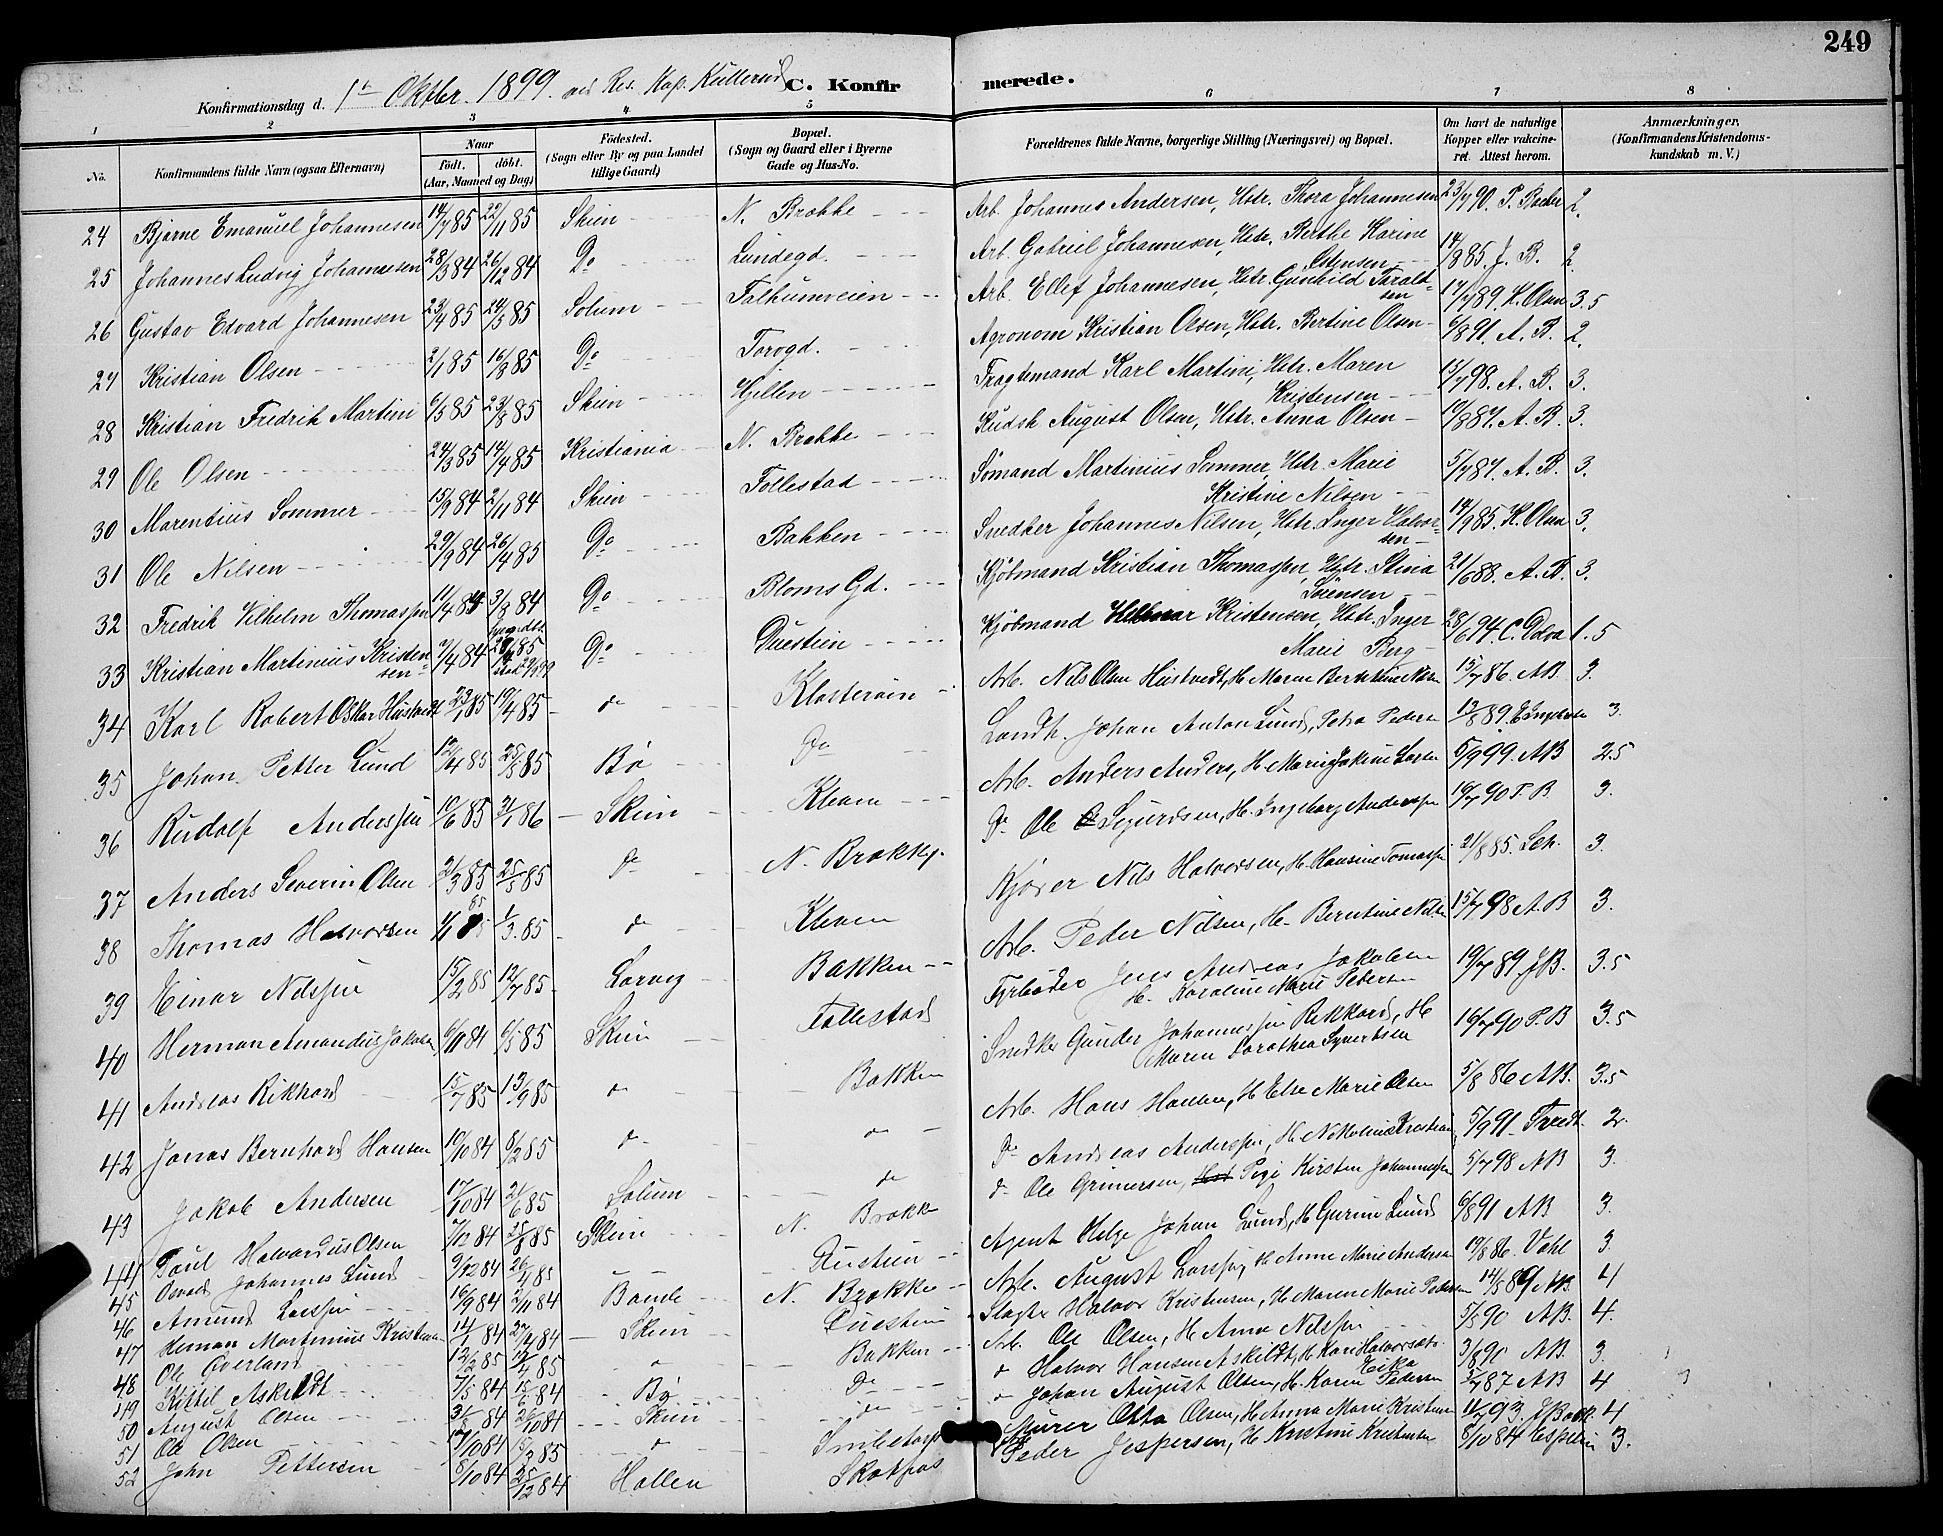 249
Konfirmationsdag d. 1ste Oktbr. 1899. ved Res. Kap. Kullerud C. Konfirmerede.
1 2 3 4 5 6 7 8
No. Konfirmandens fulde Navn (ogsaa Efternavn) Naar født. døbt. (Aar, Maaned og Dag) Fødested. (Sogn eller By og paa Landet tillige Gaard) Bopæl. (Sogn og Gaard eller i Byerne Gade og Hus-No. Forældrenes fulde Navne, borgerlige Stilling (Næringsvei) og Bopæl. Om havt de naturlige Kopper eller vakcineret. Attest herom. Anmærkninger. (Konfirmandens Kristendomskundskab m. V.)
24 Bjarne Emanuel Johannesen 14/7 85 22/11 85 Skien N. Brække Arb. Johannes Andersen, Hstr. Thora Johannesen 23/7 90. P. Backer 2.
25 Johannes Ludvig Johannesen 28/3 84 26/12 84 Do Lundegd. Arb. Gabriel Johannesen, Hstr. Berthe Karine Estensen 14/8 85. J. B. 2.
26 Gustav Edvard Johannesen 23/4 85 24/5 85 Solum Falkumveien Arb. Ellef Johannesen, Hstr. Gunhild Taraldsen 17/7 89. K. Olsen 3.5
27 Kristian Olsen 2/1 85 16/3 85 Do Torvgd. Agronom Kristian Olsen, Hstr. Bertine Olsen 6/8 91. A. B. 2.
28 Kristian Fredrik Martini 6/5 85 23/8 85 Skien Hjellen Fragtemand Karl Martini, Hstr. Maren Kristensen 15/7 98. A. B. 3.
29 Ole Olsen 24/3 85 14/4 85 Kristiania N. Brække Kudsk August Olsen, Hstr. Anna Olsen 10/8 87. A. B. 3.
30 Marentius Sommer 15/9 84 2/11 84 Skien Follestad Sømand Martinius Sommer, Hstr. Marie Kristine Nilsen 5/7 87. A. B. 3.
31 Ole Nilsen 29/9 84 26/4 85 Do Bakken Snedker Johannes Nilsen, Hstr. Inger Halvorsen 14/9 85. K. Olsen 3.
32 Fredrik Vilhelm Thomassen 11/4 84 3/8 84 Do Bloms Gd. Kjøbmand Kristian Thomassen, Hstr. Stina Sørensen 21/6 88. A. B. 3.
33 Kristian Martinius Kristensen 2/4 84 Do Duestien Kjøbmand Helmar Kristensen, Hstr. Inger Marie Berg 28/6 94. C. 1.5
34 Karl Robert Oskar Hustvedt 23/1 85 19/4 85 do Klosterøen Arb. Nils Olsen Hustvedt, H. Maren Berntine 15/7 86. AB. 3.
35 Johan Petter Lund 12/4 85 25/5 85 Bø Do Landh. Johan Anton Lund, Petra Peders 13/8 89. 3.
36 Rudolf Anderssen 10/6 85 31/1 86 Skien Kleven Arb. Anders Anders, H. Marie Jokine Larsen 5/9 99. AB 2.5
37 Anders Severin Olsen 2/3 85 25/5 85 do N. Brække Do Ole Sigurdsen, H. Ingeborg Anderssen 19/7 90 P. B 3.
38 Thomas Halvorsen 1/3. 85 do Kleven Kjører Nils Halvorsen, H. Hansine Tomassen 21/8 85. Sch. 3.
39 Einar Nilssen 15/2 85 12/7 85 Larvig Bakken Arb. Peder Nilsen, H. Berntine Nilsen 15/7 98 A. B 3.
40 Herman Amandus Jakobsen 6/11 84 6/5 85 Skien Follestad Fyrbøder Jens Andreas Jakobsen H. Karoline Marie Petersen 19/7 89. JB. 3.5
41 Andreas Rikkard 15/7 85 13/9 85 do Bakken Snedker Gunder Johannessen Rikkard, H Maren Dorothea Syvertsen 16/7 90 P. B 3.5
42 Jonas Bernhard Hansen 10/10 84 8/2 85 do do Arb. Hans Hansen, H Else Marie Olsen 5/8 86 AB. 3.5
43 Jakob Andersen 17/10 84 21/6 85 Solum do Do Andreas Anderssen, H. Nikoline Kristians 5/9 91. Tvedt. 2.
44 Paul Halvardus Olsen 7/12 84 25/8 85 Skien N. Brække do Ole Grinersen, Pigi Kirsten Johannessen 5/7 98 AB 3.
45 Osvald Johannes Lund 9/12 84 26/4 85 Duestien Agent Helge Johan Lund, H Gurine Lund 6/8 91 AB 3.
46 Amund Larssen 16/9 84 2/11 84 Bamle N. Brække Arb. August Larssen, H Anne Marie Andersen 19/8 86. Vahl 3.
47 Herman Martinius Kristensen 14/1 84 27/4 84 Skien Duestien Slagter Halvor Kristensen, H. Maren Marie Pedersen 14/5 89 AB. 4
48 Ole Øverland 12/2 85 12/4 85 do Bakken Arb. Ole Olsen, H Anne Nilssen 5/5 90 AB. 4.
49 Kittil Askildt 7/5 84 15/6 84 Bø Do do Halvor Hansen Askildt, H. Kari Halvorsdt. Eika 3/6 90 AB 3.
50 August Olsen 31/8 84 2/10 84 Skien do do Johan August Olsen, H. Karen Pedersen 5/7 87 AB 4
51 Ole Olsen 17/10 84 15/3 85 do Snibetorp Murer Otto Olsen, H Anna Marie Kristensen 11/7 93. J Bøok. 4
52 John Pettersen 8/10 84 25/12 84 Hollen Skotfos Arb Peder Jespersen, H Kristine Kristensen 8/10 84 3.